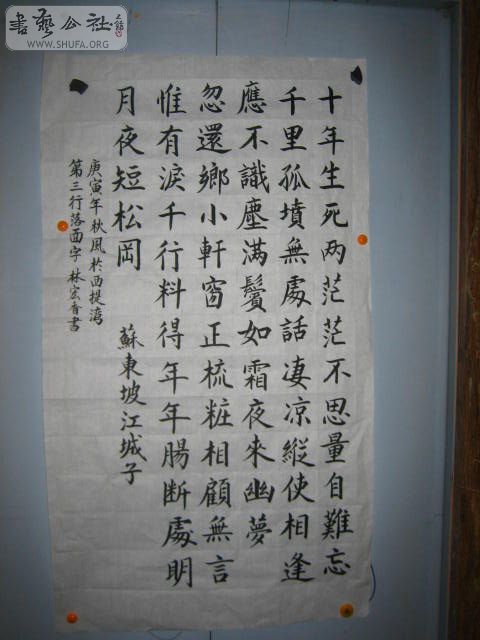 書藝公社
WWW.SHUFA.ORG
十年生死两茫茫不思量自難忘
千里孤墳無處話凄凉縱使相逢
應不識塵满鬢如霜夜来幽夢
忽還鄉小軒窗正梳粧相顧無言
惟有淚千行料得年年腸断處明
月夜短松岡 蘇東坡江城子
庚寅年秋風於西提湾
第三行落面字 林宏香書